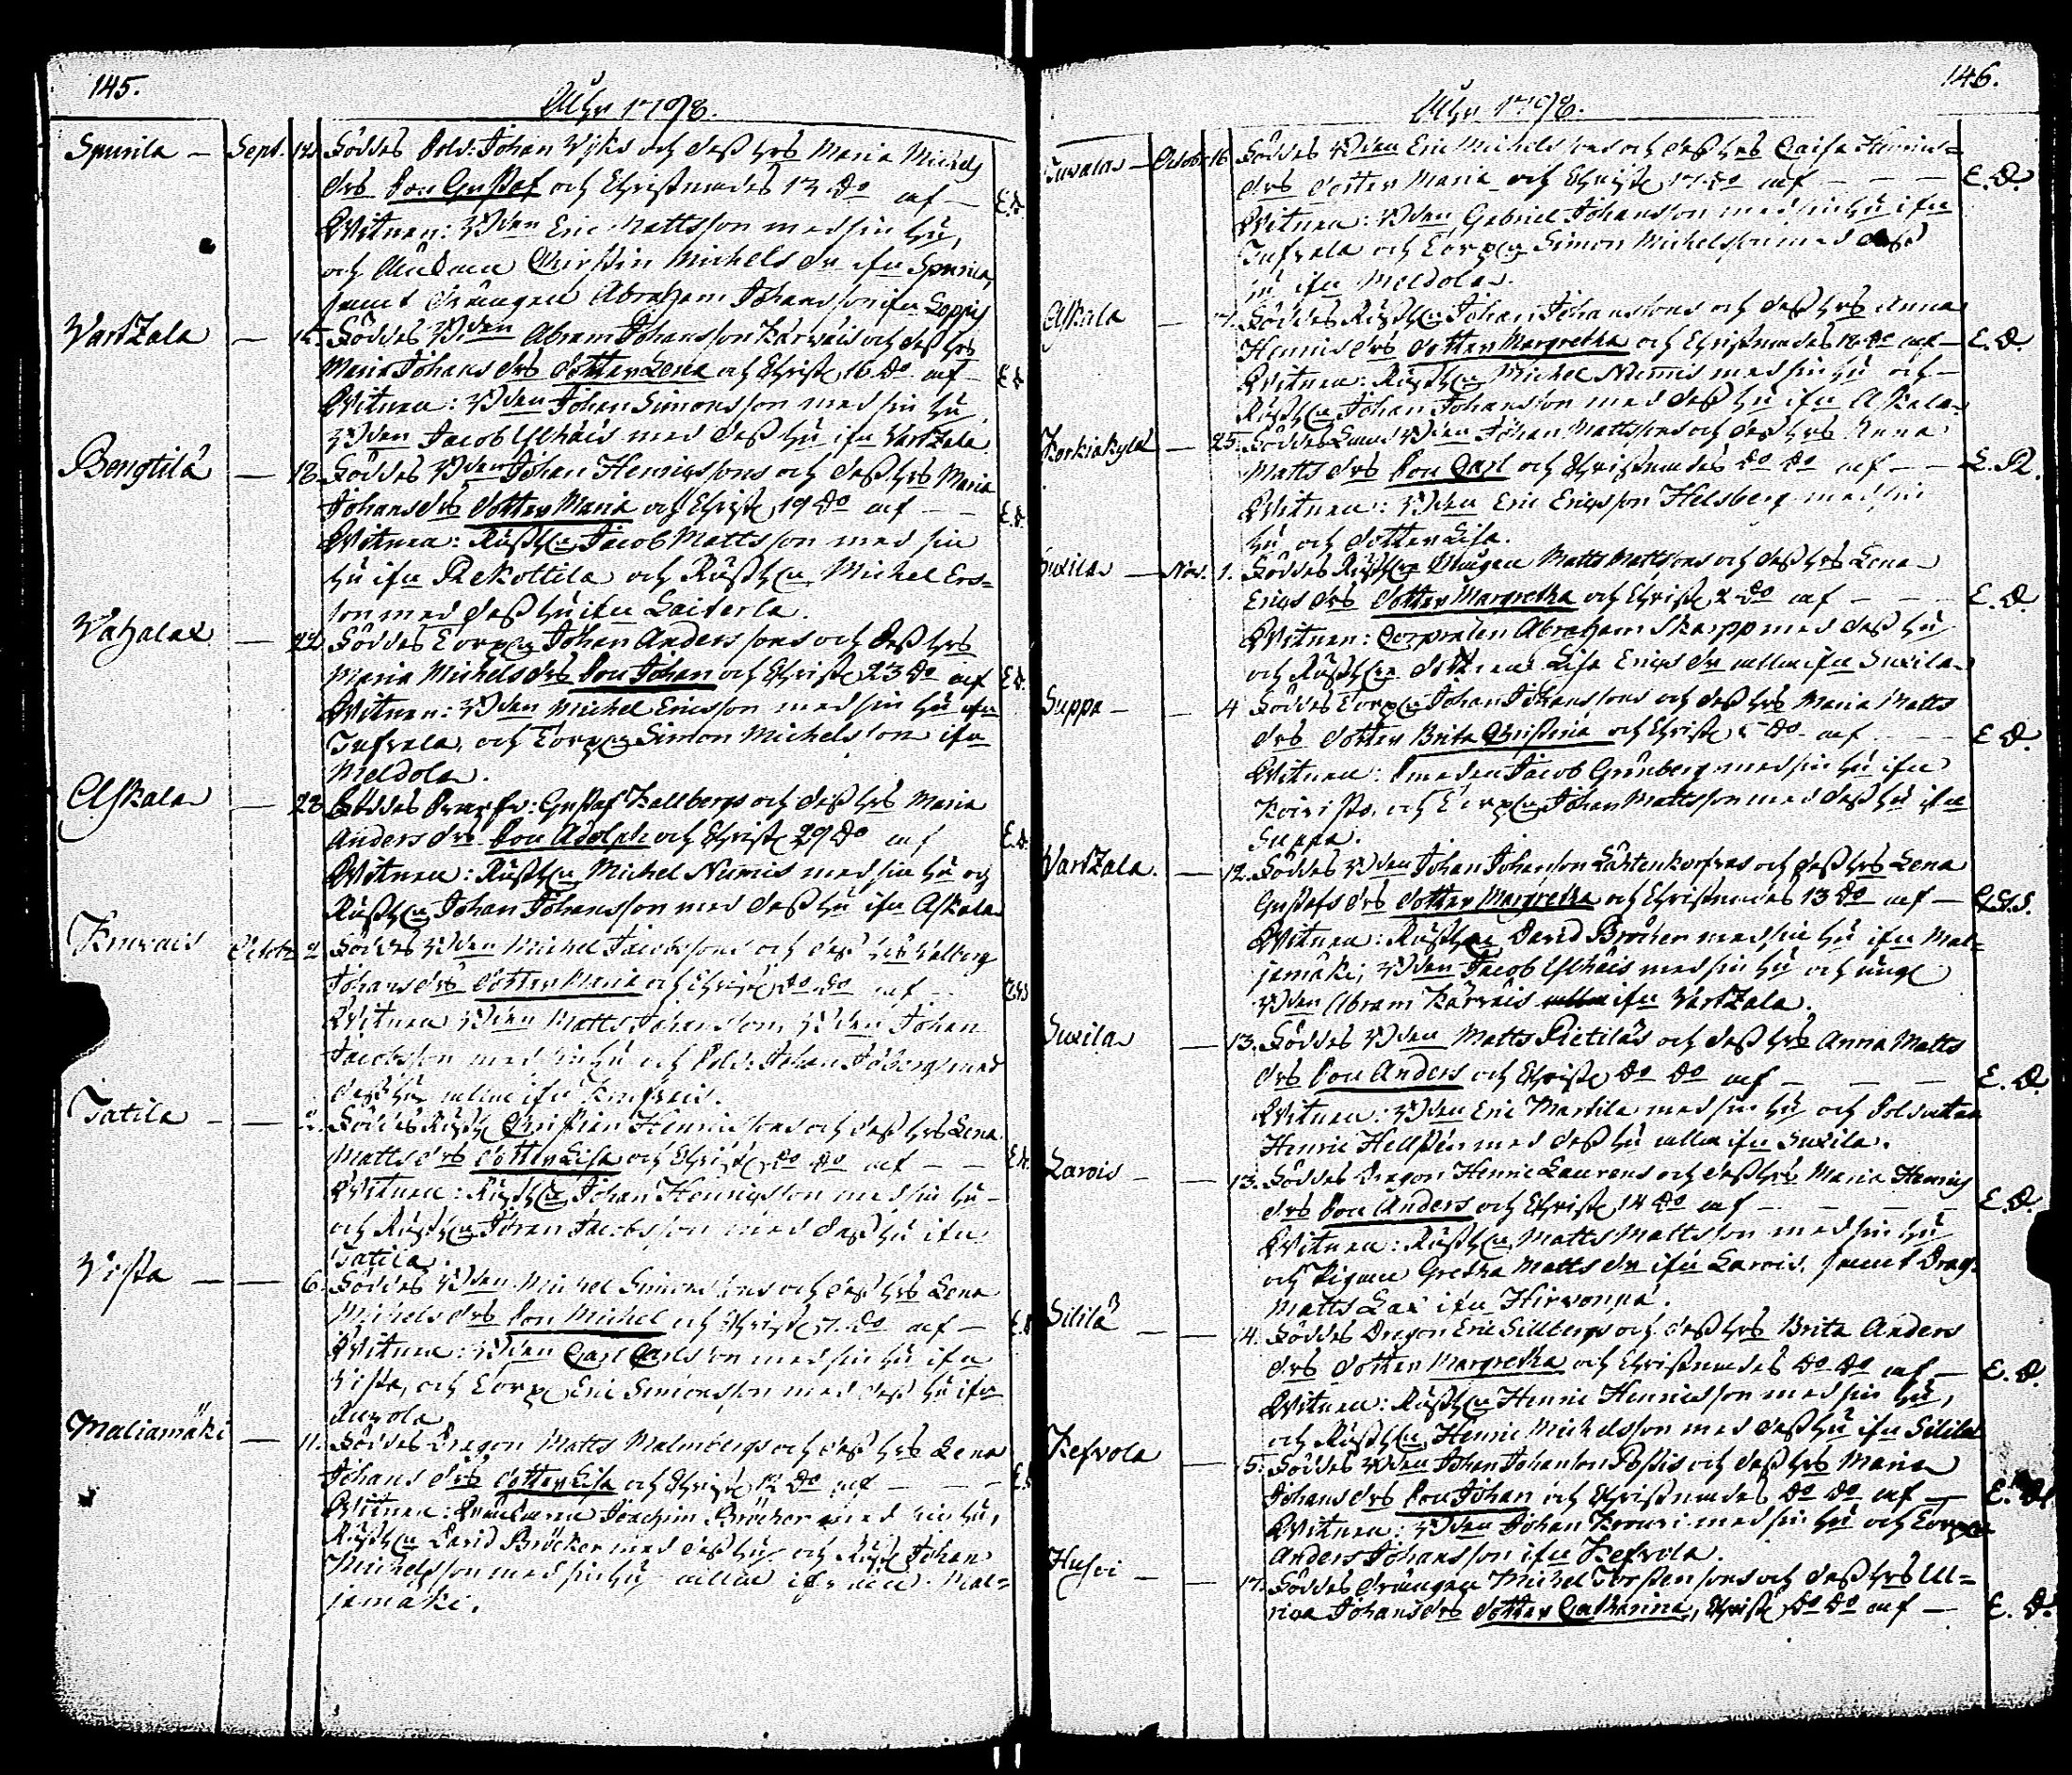 145.
Åhr 1798.
Spurila — Sept. 12. Föddes Sold: Johan Wijks och dess hrs Maria Michels
drs Son Gustaf och Christnades 13 do af — E. D.
Witnen: Bden Eric Mattsson med sin hu,
och Christin Michels dr ifrn Spurila,
samt drängen Abraham Johansson ifrn Loppis
Vartzala — 15. Föddes Bden Abram Johansson Kärväis och dess hrs
Maria Johans drs dotter Lena och Christ 16 do af — E. D.
Witnen: Bden Johan Simonsson med sin hu
Bden Jacob Ylhäis med dess hu ifrn Vartzala.
Bengtilä — 18. Föddes Bden Johan Henricssons och dess hrs Maria
Johans drs dotter Maria och Christ 19 do af — — E. D.
Witnen: Rusth Jacob Mattsson med sin
hu ifrn Rekottila och Rusth Michel Ers=
son med dess hu ifrn Laiterla.
Vähalax — 22. Föddes Torp Johan Anderssons och dess hrs
Maria Michels drs Son Johan och Christ 23 do af E. D.
Witnen: Bden Michel Ericsson med sin hu ifrn
Tufvala, och Torp Simon Michelsson ifrn
Meldola.
Askala — 28. Föddes Gustaf Kallbergs och dess hrs Maria
Anders drs Son Adolph och Christ 29 do af E. D.
Witnen: Rusth Michel Numis med sin hu och
Rusth Johan Johansson med dess hu ifrn Askala
Octobr 2. Föddes Bden Michel Jacobssons och dess hrs Valborg
Johans drs dotter Maria och Christ do do af —
Witnen Bden Matts Johansson, Bden Johan
Jacobsson med sin hu och Sold: Johan med
dess hu alla ifrn
Tatila — — Föddes Rusth Christian Henricssons och dess hrs Lena
Matts drs dotter Lisa och Christ do do af — — E. D.
Witnen: Rusth Johan Henricsson med sin hu —
och Rusth Johan Jacobsson med dess hu ifrn
Tatila.
Vista — — 6. Föddes Bden Michel Simonssons och dess hrs Lena
Michels drs Son Michel och Christ 7. do af — E. D.
Witnen: Bden Carl Carlsson med sin hu ifrn
Vista, och Torp Eric Simonsson med dess hu ifrn

Maliamäki — 11. Föddes Dragon Matts Malmbergs och dess hrs Lena
Johans drs dotter Lisa och Christ 12 do af — — —
Witnen: Joachim Bröcker med sin hu,
Rusth David Bröcker med dess hu och Rusth Johan
Michelsson med sin hu alla ifrn Mal=
jamäki.
146.
Åhr 1798.
Tuvala — Octobr 16. Föddes Bden Eric Michelssons och dess hrs Caisa Henrics=
drs dotter Maria och Christ 17 do af — — — E. D.
Witnen: Bden Gabriel Johansson med sin hu ifrn
Tufvala och Torp Simon Michelsson med dess
hu ifrn Meldola.
Askala — 17. Föddes Rusth Johan Johanssons och dess hrs Anna
Henrics drs dotter Margretha och Christnades 18 do af — E. D.
Witnen: Rusth Michel Numis med sin hu och —
Rusth Johan Johansson med dess hu ifrn Askala
Korkiakylä — 25. Föddes Bden Johan Mattssons och dess hrs Anna
Matts drs Son Carl och Christnades do do af — —
Witnen: Bden Eric Ericsson Helsberg med sin
hu och dotter Lisa.
Suxila — Nov. 1. Föddes Rusth Matts Mattssons och dess hrs Lena
Erics drs dotter Margretha och Christ 2 do af — — — E. D.
Witnen: Corporalen Abraham Skarpp med dess hu
och Rusth dottren Lisa Erics dr alla ifrn Suxila
Suppa — — 4 Föddes Torp Johan Johanssons och dess hrs Maria Matts
drs dotter Brita Christina och Christ 5 do af — — E. D.
Witnen: Smeden Jacob Grönberg med sin hu ifrn
Koivisto, och Torp Johan Mattsson med dess hu ifrn
Suppa.
Vartzala. — 12. Föddes Bden Johan Johansson och dess hrs Lena
Gustafs drs dotter Margretha och Christnades 13 do af —
Witnen: Rusth David Bröcker med sin hu ifrn Mal=
jamäki, Bden Jacob Ylhäis med sin hu och unge
Bden Abram Kärväis ifrn Vartzala.
Suxila — 13. Föddes Bden Matts Pietiläs och dess hrs Anna Matts
drs Son Anders och Christ do do af — — — E. D.
Witnen: Bden Eric Martila med sin hu och Soldaten
Henric Hellstén med dess hu alla ifrn Suxila.
Karvis — — 13. Föddes Dragon Henric Laurens och dess hrs Maria Henrics
drs Son Anders och Christ 14 do af — — — — E. D.
Witnen: Rusth Matts Mattsson med sin hu
och Pigan Gretha Matts dr ifrn Karvis, samt Drag.
Matts Lax ifrn Hirvonpä.
Sililä — — 14. Föddes Dragon Eric Sillbergs och dess hrs Brita Anders
drs dotter Margretha och Christnades do do af — E. D.
Witnen: Rusth Henric Henricsson med sin hu,
och Rusth Henric Michelsson med dess hu ifrn Sililä
Kefvola — 15. Föddes Bden Johan Johansson Possis och dess hrs Maria
Johans drs Son Johan och Christnades do do af — E. D.
Witnen: Bden Johan Krouvi med sin hu och Torp
Anders Johansson ifrn Kefvola.
Husvi — — 17. Föddes drängen Michel Torstenssons och dess hrs Ul=
rica Johans drs dotter Catharina, Christ do do af — E. D.